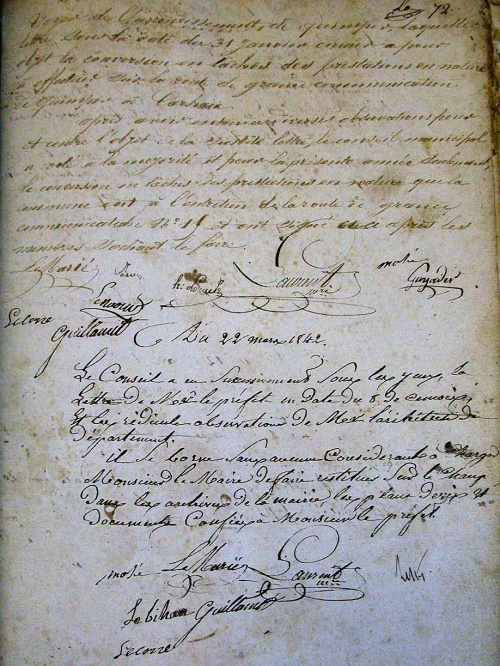 72
Voyer de l'arrondissement de quimper, laquelle
lettre sous la date du 31 janvier dernier a pour
objet la conversion en taches des prestations en nature
sur la route de grande communication
de quimper à Carhaix
après avoir diverses observations pour
et contre l'objet de la lettre le conseil municipal
a voté à la majorité et pour la présente année seulement,
la conversion en taches des prestations en nature que la
commune doit à l'entretien de la route de grande
communication N° 11 et ont signé après les
membres sachant le faire.
Le Marié
Laurent
mre
mosé
Guyader
Lecorre
Guillaud
Du 22 mars 1842.
Le Conseil a eu Sous les yeux, la
Lettre de Mr le préfet en date du 8 de ce mois,
Et les ridicule observation de Mr l'architecte du
département.
il se borne sans aucun Considerant a charger
Monsieur le Maire de faire restituer Sur le champ
Dans les archives de la mairie les plans devis et
documents Confiés à Monsieur le préfet
mosé Le Marié Laurent
mre
Le bihan Guillaud
Lecorre